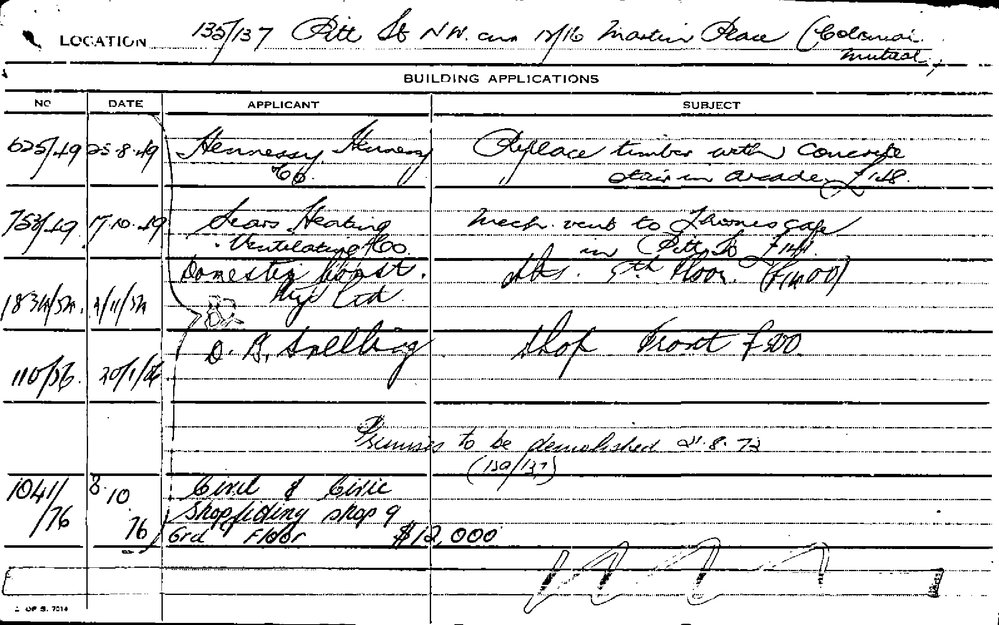 LOCATION 135/137 Pitt St N.W. cnr 12/16 Martin Place (Colonial
Mutual)
BUILDING APPLICATIONS
NO DATE APPLICANT SUBJECT
625/49 25-8-49 Hennessy, Hennessy Replace timber with concrete
& Co. stair in arcade £148.
753/49 17.10.49 Sears Heating Mech. vent to
Ventilating & Co. in Pitt St £144
Domestic Const. 9th Floor. (£1400)
Pty Ltd
D. B. Snelling Shop Front £200.
110/56 20/1/56
Premises to be demolished 21.8.73
(129/137)
1041/ 8.10 Civil & Civic
/76 76 Shopfitting shop 9
Grd Floor $12,000